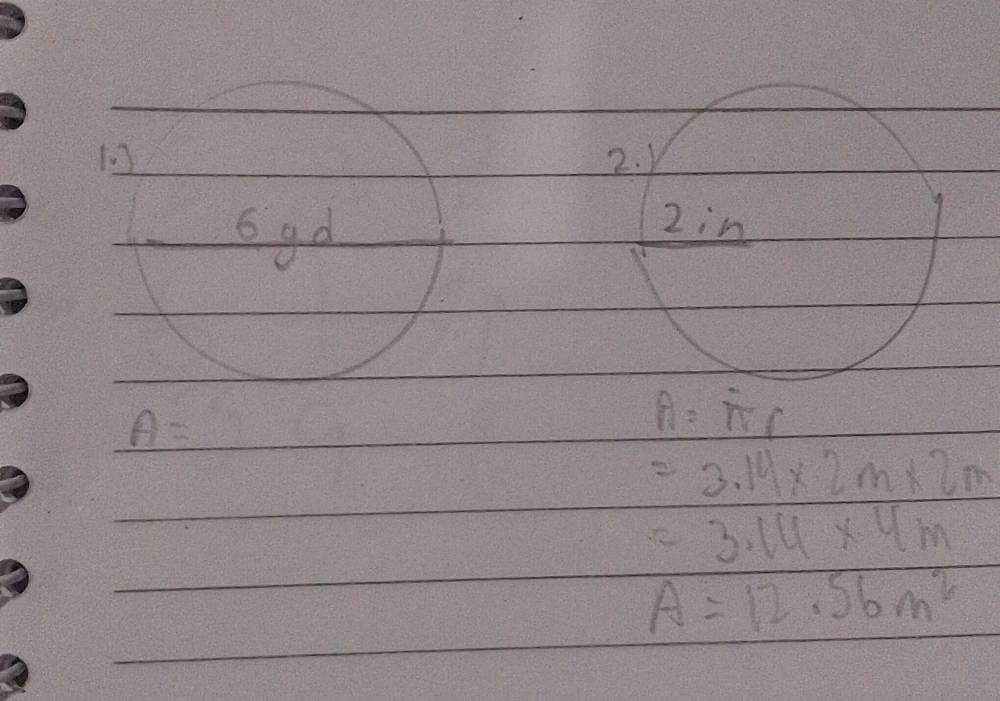 1.)
6 yd
2.)
2 in
A =
A = πr
= 3.14 x 2m x 2m
= 3.14 x 4m
A = 12.56m²